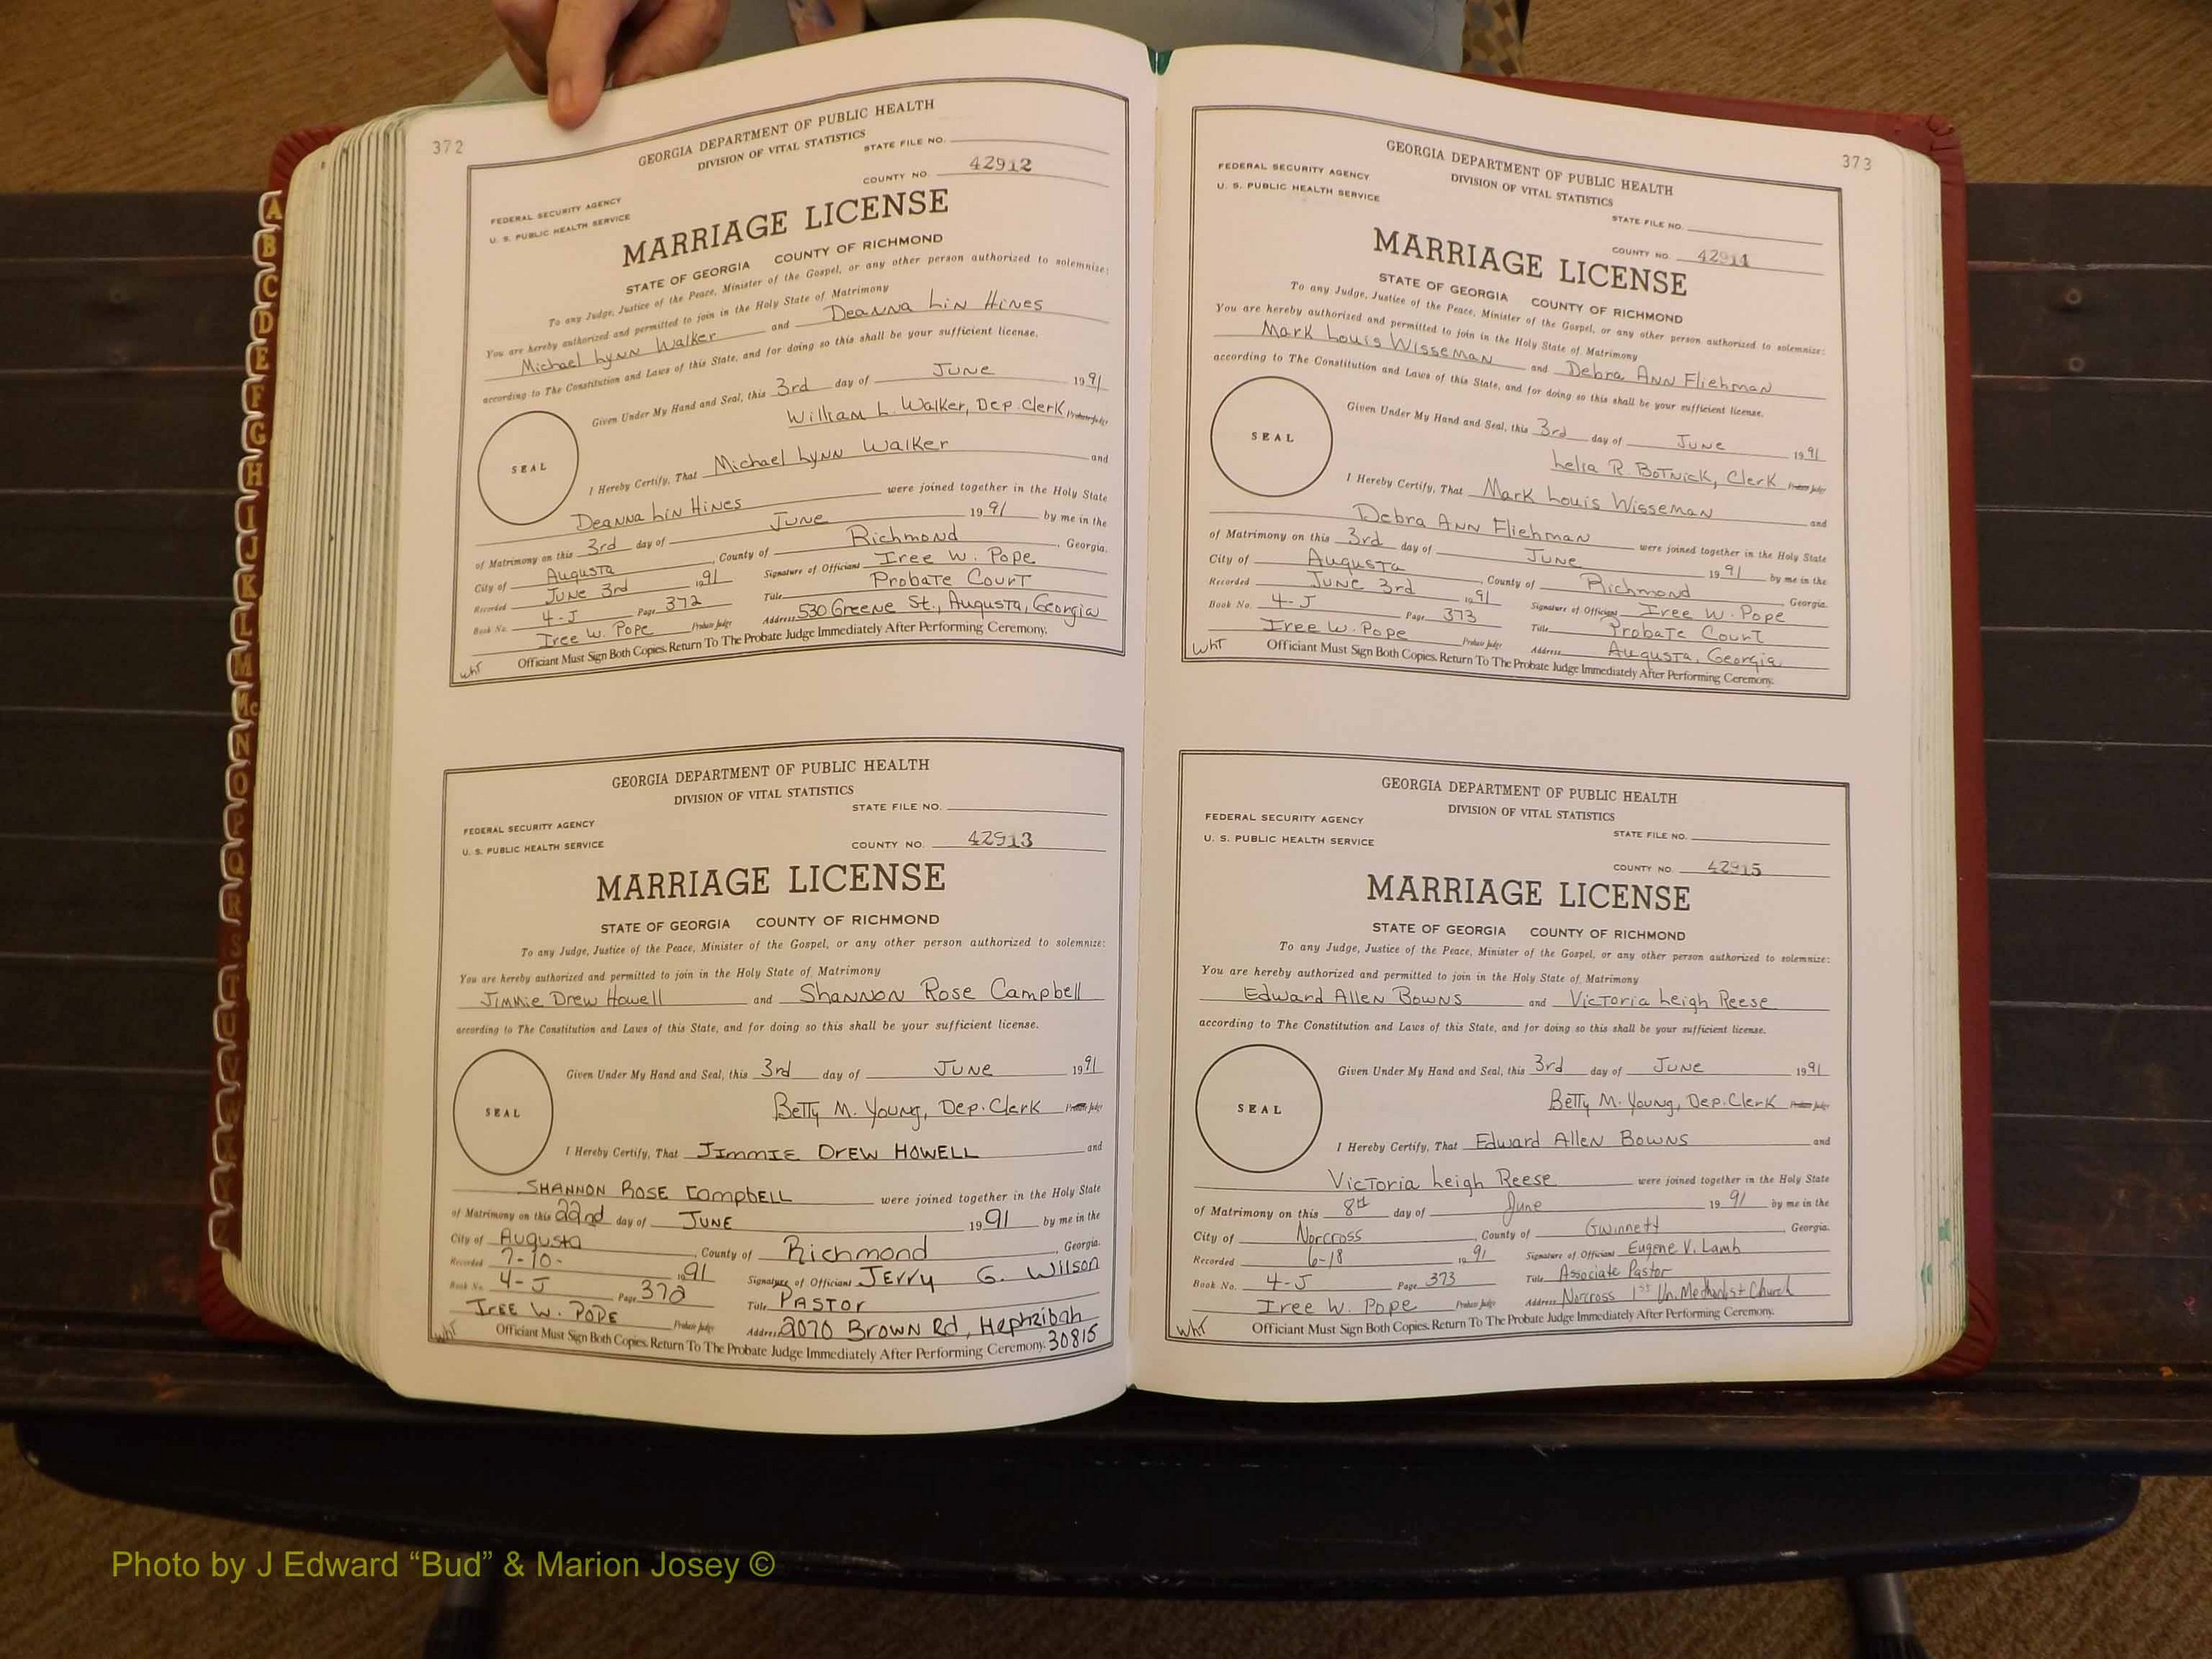 372
GEORGIA DEPARTMENT OF PUBLIC HEALTH
DIVISION OF VITAL STATISTICS
STATE FILE NO.
COUNTY NO. 42912
FEDERAL SECURITY AGENCY
U. S. PUBLIC HEALTH SERVICE
MARRIAGE LICENSE
STATE OF GEORGIA COUNTY OF RICHMOND
To any Judge, Justice of the Peace, Minister of the Gospel, or any other person authorized to solemnize:
You are hereby authorized and permitted to join in the Holy State of Matrimony
Michael Lynn Walker and Deanna Lin Hines
according to The Constitution and Laws of this State, and for doing so this shall be your sufficient license.
Given Under My Hand and Seal, this 3rd day of June 1991
William L. Walker, Dep. Clerk Probate Judge
SEAL
I Hereby Certify, That Michael Lynn Walker and
Deanna Lin Hines were joined together in the Holy State
of Matrimony on this 3rd day of June 1991 by me in the
City of Augusta, County of Richmond, Georgia.
Recorded June 3rd 1991 Signature of Officiant Iree W. Pope
Book No. 4-J Page 372 Title Probate Court
Iree W. Pope Probate Judge Address 530 Greene St., Augusta, Georgia
Officiant Must Sign Both Copies. Return To The Probate Judge Immediately After Performing Ceremony.
WHT
GEORGIA DEPARTMENT OF PUBLIC HEALTH
DIVISION OF VITAL STATISTICS
STATE FILE NO.
FEDERAL SECURITY AGENCY
U. S. PUBLIC HEALTH SERVICE
COUNTY NO. 42913
MARRIAGE LICENSE
STATE OF GEORGIA COUNTY OF RICHMOND
To any Judge, Justice of the Peace, Minister of the Gospel, or any other person authorized to solemnize:
You are hereby authorized and permitted to join in the Holy State of Matrimony
Jimmie Drew Howell and Shannon Rose Campbell
according to The Constitution and Laws of this State, and for doing so this shall be your sufficient license.
Given Under My Hand and Seal, this 3rd day of June 1991
Betty M. Young, Dep. Clerk Probate Judge
SEAL
I Hereby Certify, That JIMMIE DREW HOWELL and
SHANNON ROSE CampbELL were joined together in the Holy State
of Matrimony on this 22nd day of JUNE 1991 by me in the
City of Augusta, County of Richmond, Georgia.
Recorded 7-10- 1991 Signature of Officiant JErry G. Wilson
Book No. 4-J Page 372 Title PASTOR
IrEE W. POPE Probate Judge Address 2070 BROWN Rd, Hephzibah
Officiant Must Sign Both Copies. Return To The Probate Judge Immediately After Performing Ceremony. 30815
WHT
373
GEORGIA DEPARTMENT OF PUBLIC HEALTH
DIVISION OF VITAL STATISTICS
FEDERAL SECURITY AGENCY
U. S. PUBLIC HEALTH SERVICE
STATE FILE NO.
COUNTY NO. 42914
MARRIAGE LICENSE
STATE OF GEORGIA COUNTY OF RICHMOND
To any Judge, Justice of the Peace, Minister of the Gospel, or any other person authorized to solemnize:
You are hereby authorized and permitted to join in the Holy State of Matrimony
Mark Louis Wisseman and Debra Ann Fliehman
according to The Constitution and Laws of this State, and for doing so this shall be your sufficient license.
Given Under My Hand and Seal, this 3rd day of June 1991
Lelia R. Botnick, Clerk Probate Judge
SEAL
I Hereby Certify, That Mark Louis Wisseman and
Debra Ann Fliehman were joined together in the Holy State
of Matrimony on this 3rd day of June 1991 by me in the
City of Augusta, County of Richmond Georgia.
Recorded June 3rd 1991 Signature of Officiant Iree W. Pope
Book No. 4-J Page 373 Title Probate Court
Iree W. Pope Probate Judge Address Augusta, Georgia
Officiant Must Sign Both Copies. Return To The Probate Judge Immediately After Performing Ceremony.
WHT
GEORGIA DEPARTMENT OF PUBLIC HEALTH
DIVISION OF VITAL STATISTICS
FEDERAL SECURITY AGENCY
U. S. PUBLIC HEALTH SERVICE
STATE FILE NO.
COUNTY NO. 42915
MARRIAGE LICENSE
STATE OF GEORGIA COUNTY OF RICHMOND
To any Judge, Justice of the Peace, Minister of the Gospel, or any other person authorized to solemnize:
You are hereby authorized and permitted to join in the Holy State of Matrimony
Edward Allen Bowns and Victoria Leigh Reese
according to The Constitution and Laws of this State, and for doing so this shall be your sufficient license.
Given Under My Hand and Seal, this 3rd day of June 1991
Betty M. Young, Dep. Clerk Probate Judge
SEAL
I Hereby Certify, That Edward Allen Bowns and
Victoria Leigh Reese were joined together in the Holy State
of Matrimony on this 8th day of June 1991 by me in the
City of Norcross, County of Gwinnett, Georgia.
Recorded 6-18 1991 Signature of Officiant Eugene V. Lamb
Book No. 4-J Page 373 Title Associate Pastor
Iree W. Pope Probate Judge Address Norcross 1st Un. Methodist Church
Officiant Must Sign Both Copies. Return To The Probate Judge Immediately After Performing Ceremony.
WHT
A
B
C
D
E
F
G
H
I
J
K
L
M
Mc
N
O
P
Q
R
S
T
U
V
W
Photo by J Edward “Bud” & Marion Josey ©